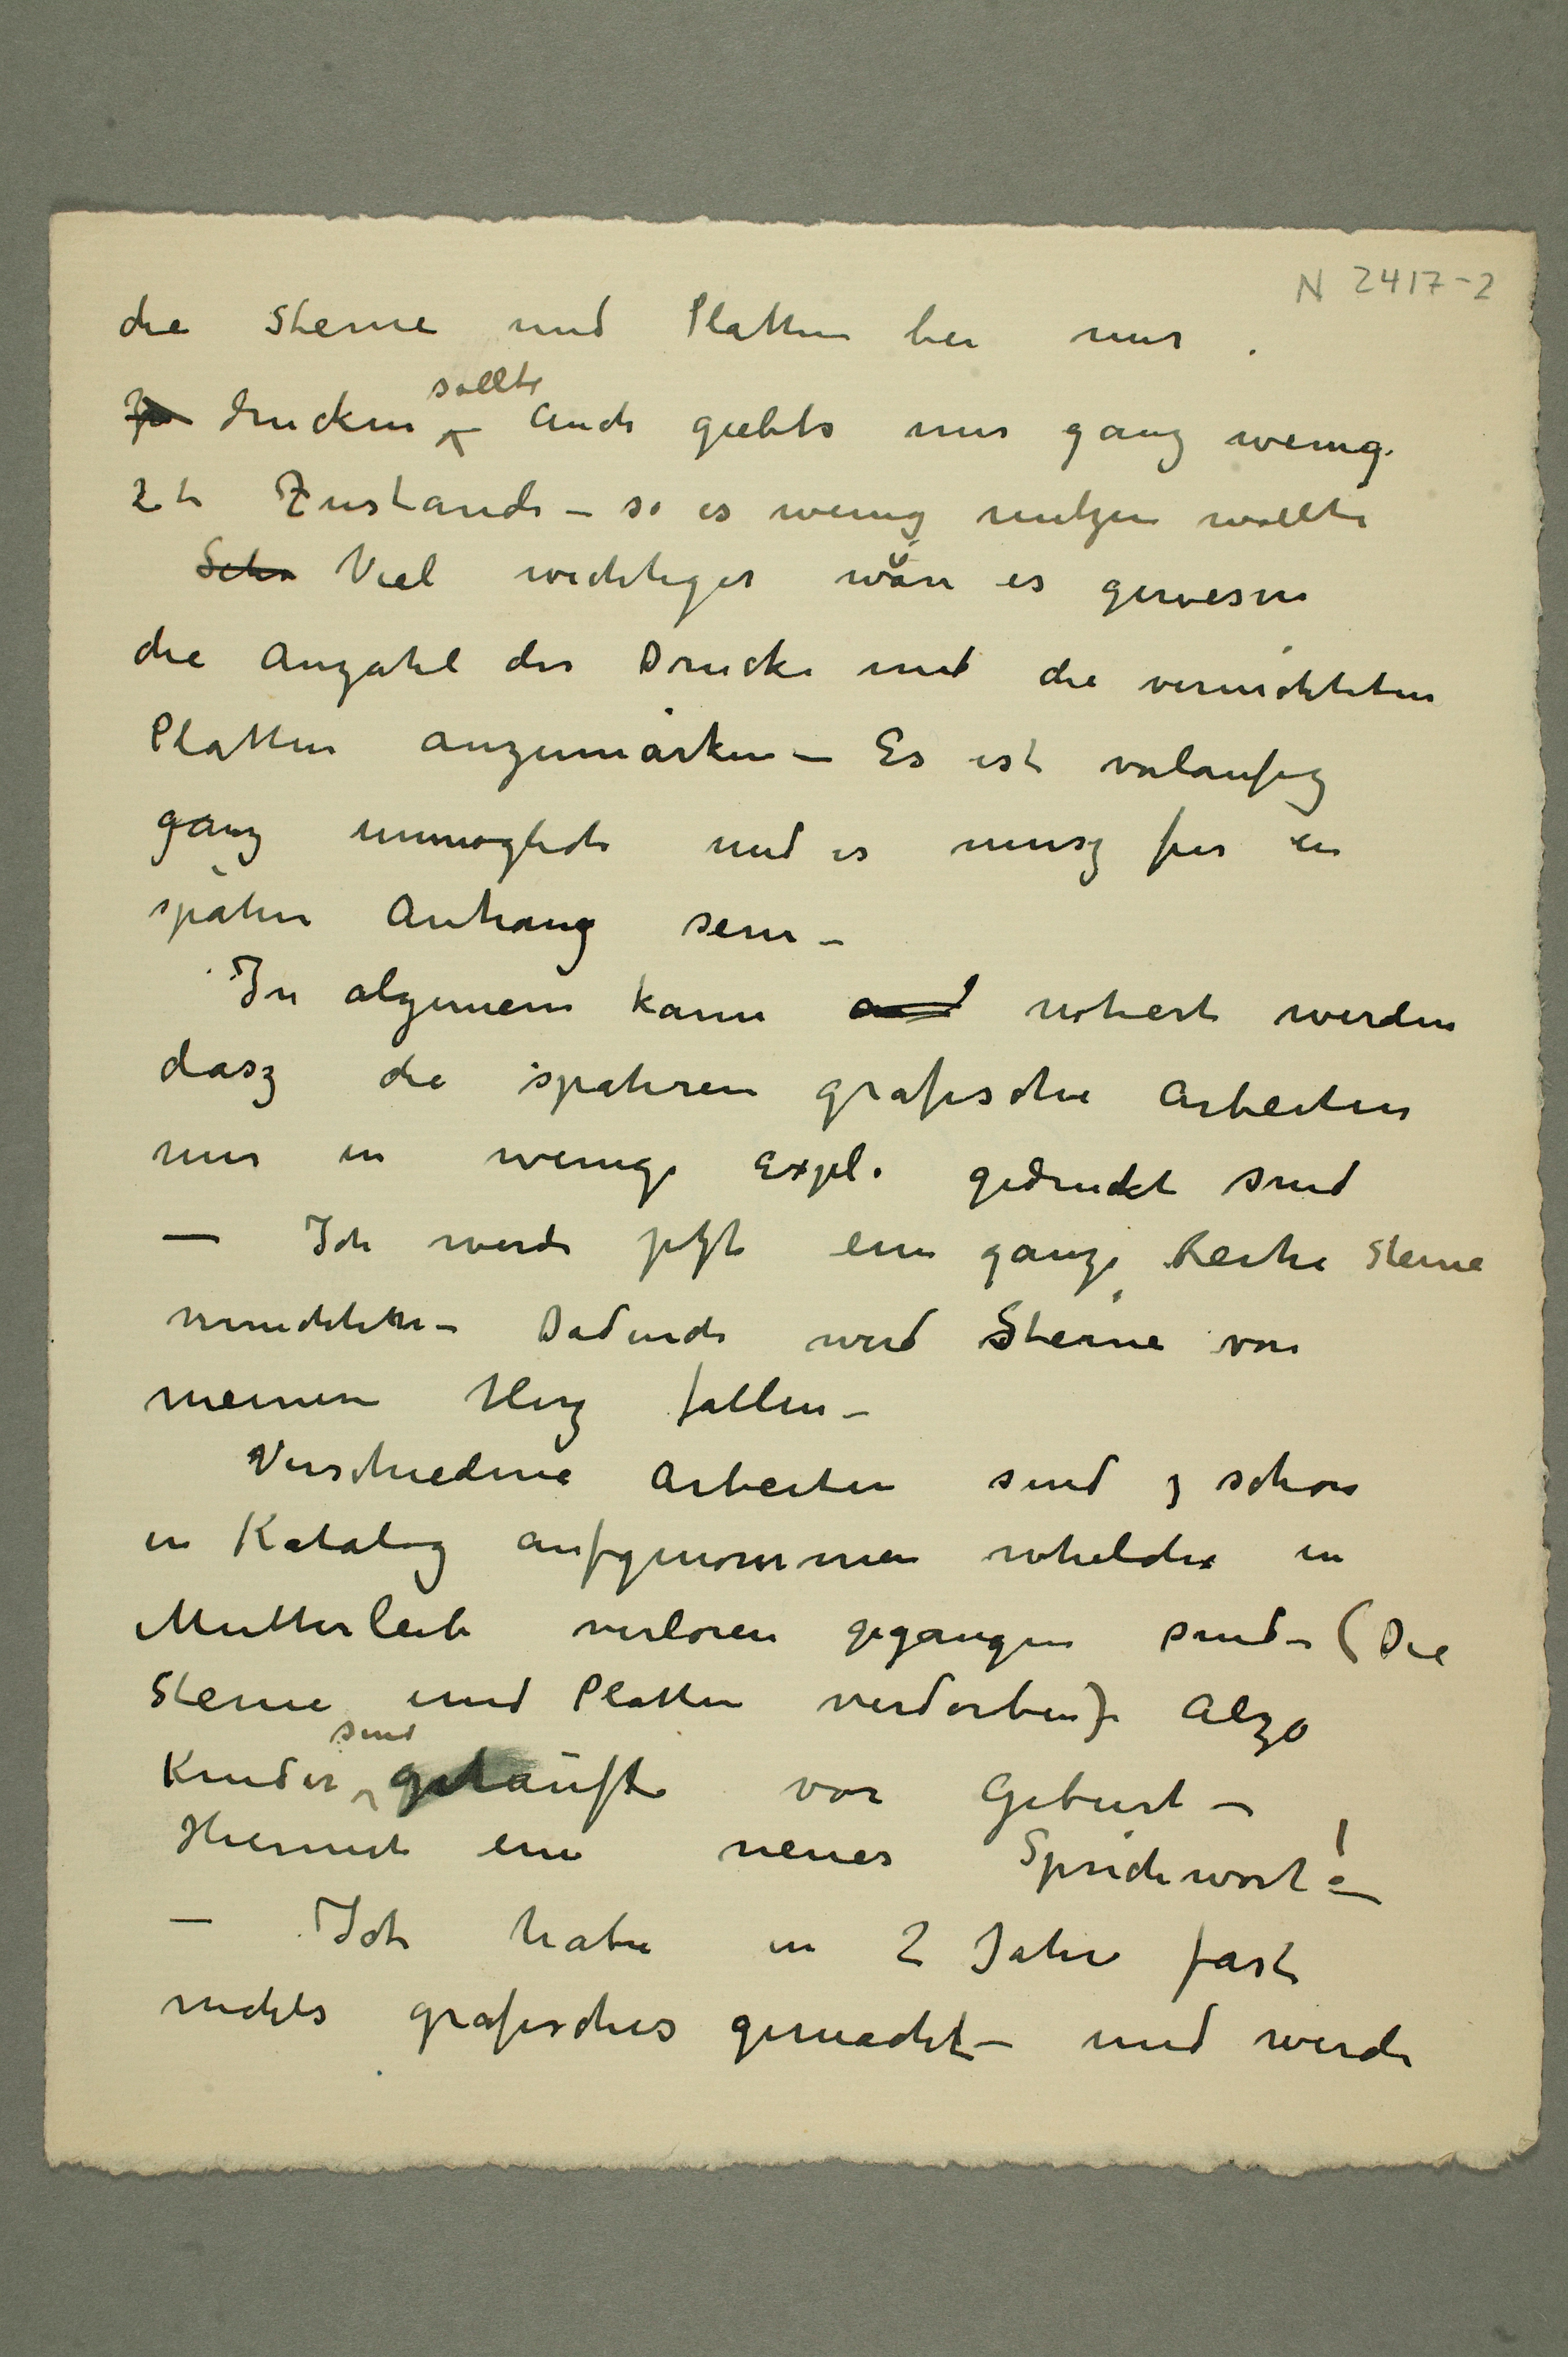 N 2417-2
die Steine und Platten bei mir.
zu drucken sollte – Auch giebts nur ganz wenig
2te Zustande – so es wenig nutzen wollte
Sehr Viel wichtiger wäre es gewesen
die Anzahl der Drucke und die vernichteten
Platten anzumärken – Es ist vorlaufig
ganz unmoglich und es musz fur ein
später Anhang sein –
In algemein kann auch notiert werden
dasz die späteren grafische Arbeiten
nur in wenige Expl. gedruckt sind
– Ich werde jetzt eine ganze Reihe Steine
vernichten – Dadurch wird Steine von
meinem Herz fallen –
Verschiedene Arbeiten sind schon
in Katalog aufgenommen whelche in
Mutterleib verloren gegangen sind – (Die
Steine und Platten verdorben) Alzo
Kinder sind getauft vor Geburt –
Hiermit ein neues Sprichwort! –
– Ich habe in 2 Jahre fast
nichts grafisches gemacht – und werde